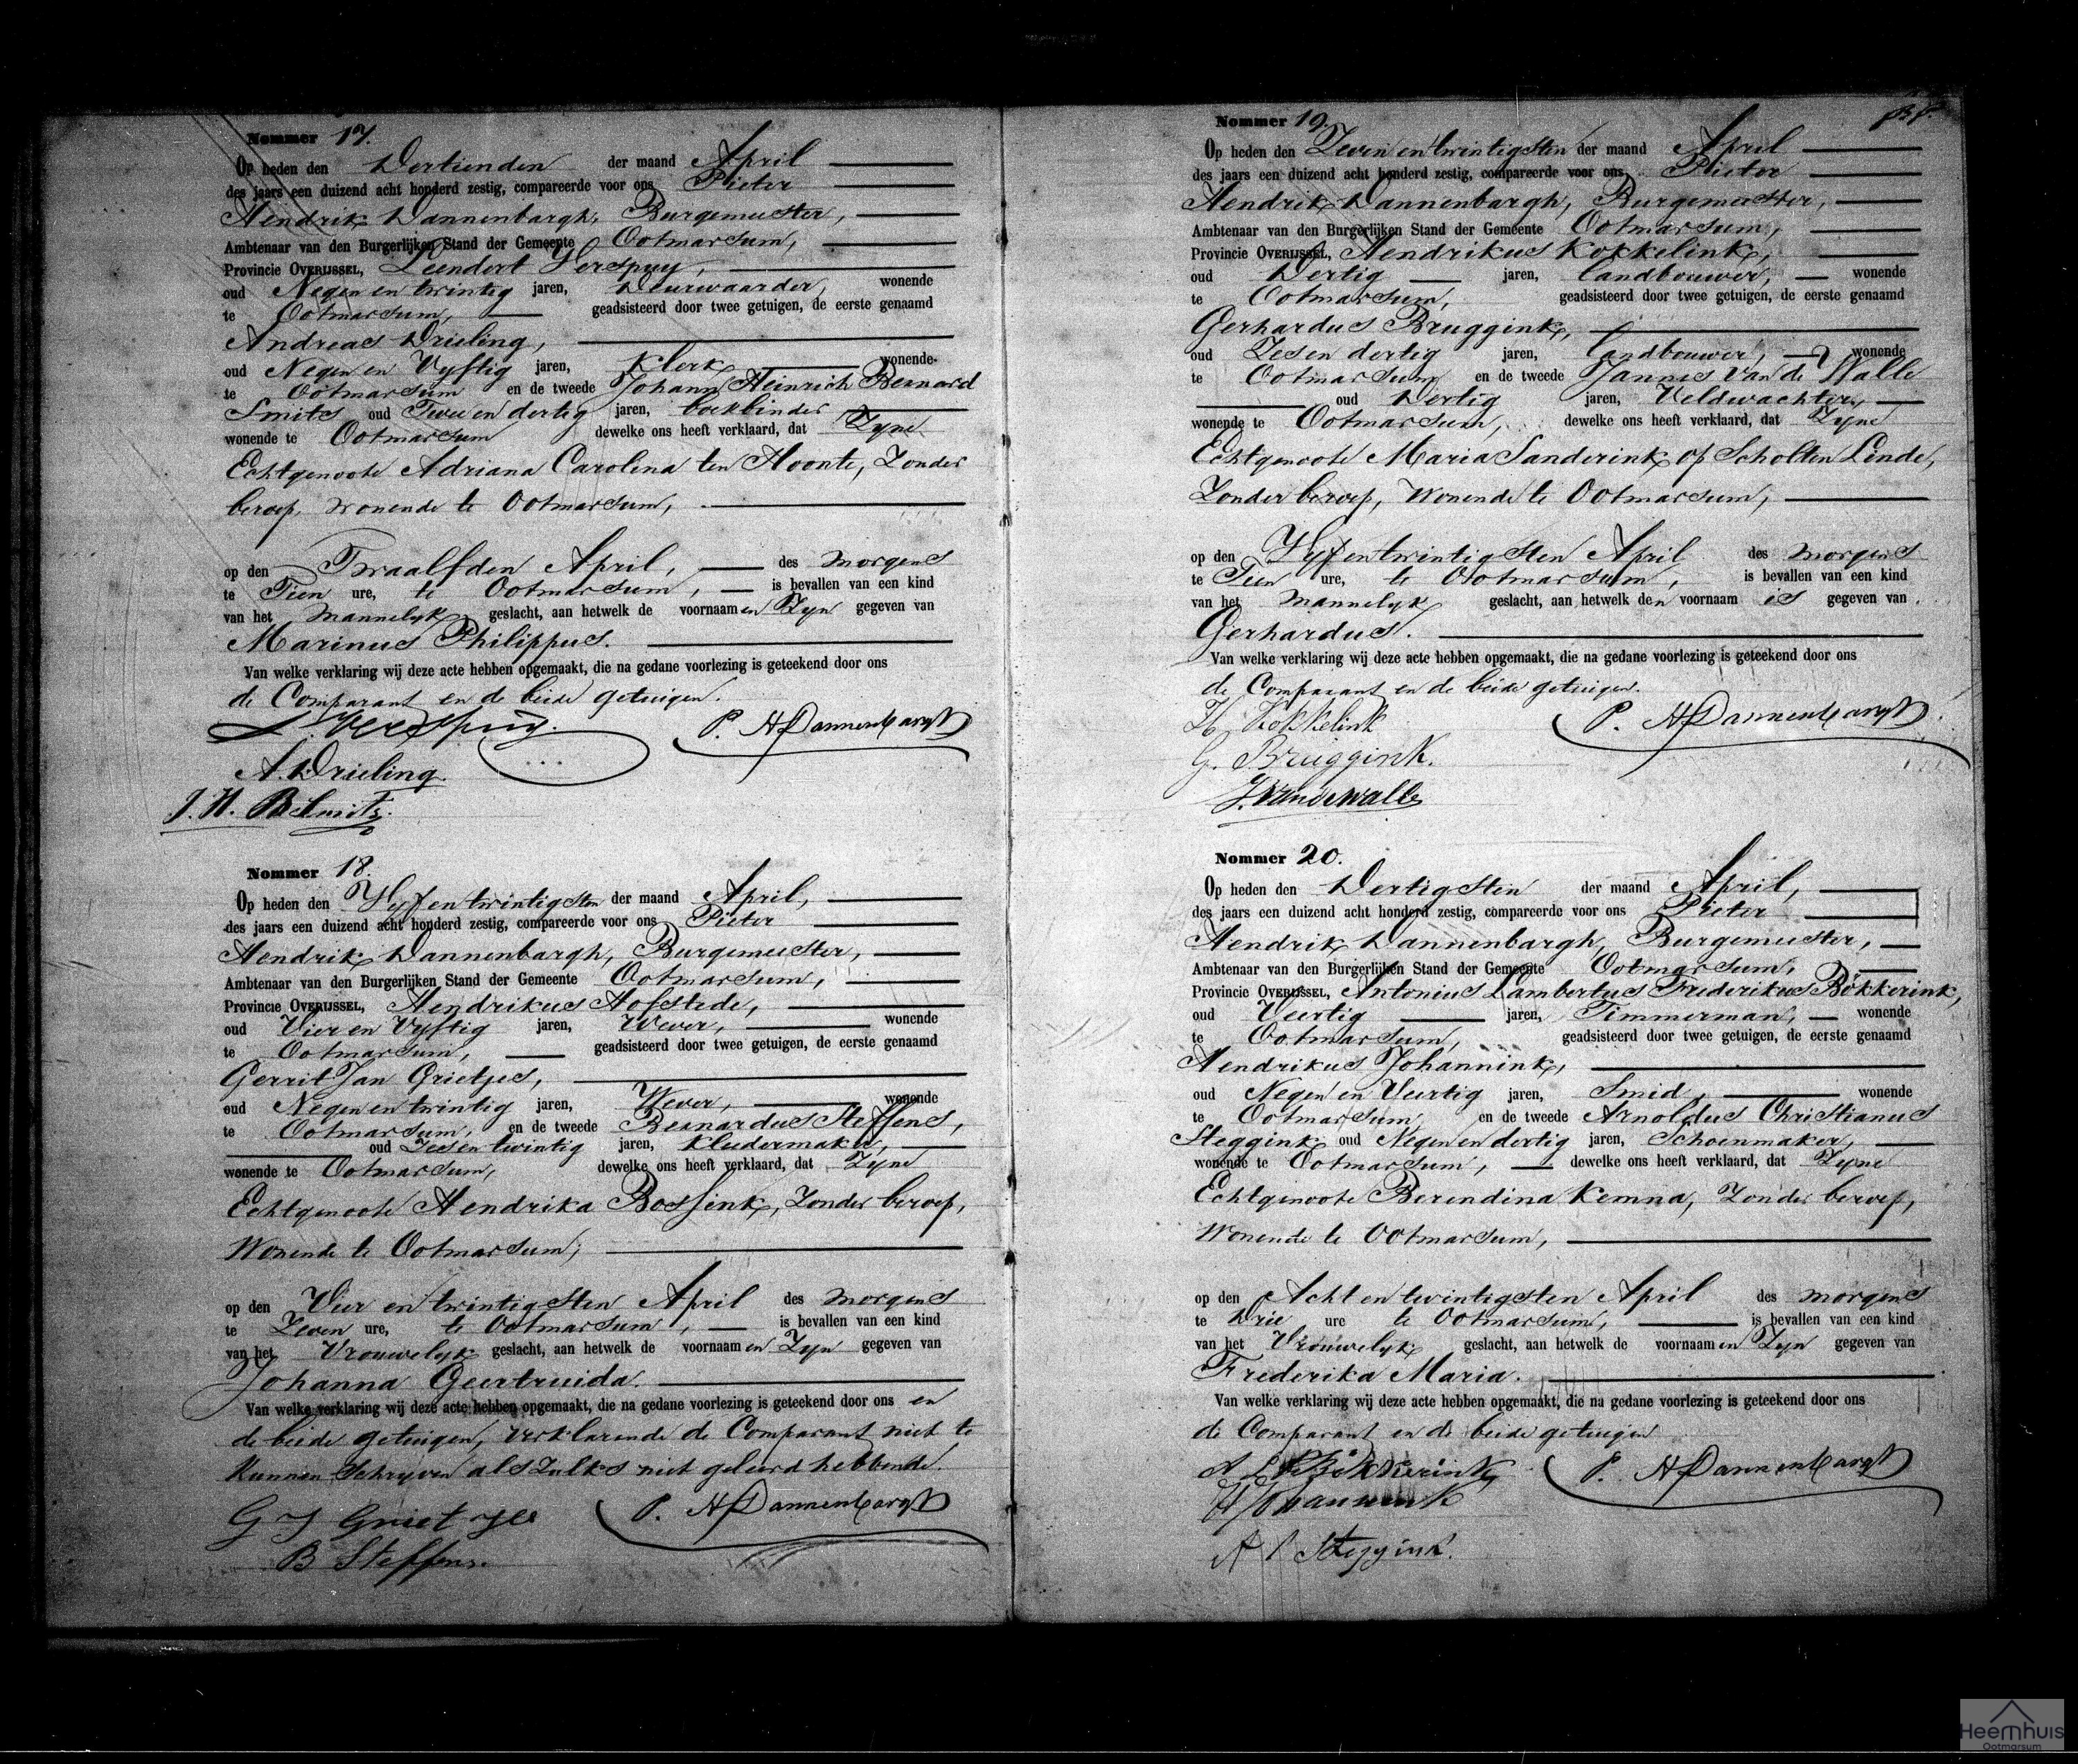 Nommer 17.
Op heden den Dertienden der maand April
des jaars een duizend acht honderd zestig, compareerde voor ons Pieter
Hendrik Dannenbargh, Burgemeester,
Ambtenaar van den Burgerlijken Stand der Gemeente Ootmarsum,
Provincie OVERIJSSEL, Leendert Verspuy,
oud Negen en twintig jaren, Deurwaarder, wonende
te Ootmarsum, geadsisteerd door twee getuigen, de eerste genaamd
Andreas Drieling,
oud Negen en Vyftig jaren, Klerk wonende
te Ootmarsum en de tweede Johann Heinrich Bernard
Smits oud Twee en dertig jaren, boekbinder
wonende te Ootmarsum dewelke ons heeft verklaard, dat Zyne
Echtgenoote Adriana Carolina ten Hoonte, Zonder
beroep, wonende te Ootmarsum,
op den Twaalfden April, des morgens
te Tien ure, te Ootmarsum, is bevallen van een kind
van het Mannelyk geslacht, aan hetwelk de voornaamen Zyn gegeven van
Marinus Philippus.
Van welke verklaring wij deze acte hebben opgemaakt, die na gedane voorlezing is geteekend door ons
de Comparant en de beide getuigen.
L. Verspuy. P. H Dannenbargh
A. Drieling.
J. H. B Smits.
Nommer 18.
Op heden den Vyf en twintigsten der maand April,
des jaars een duizend acht honderd zestig, compareerde voor ons Pieter
Hendrik Dannenbargh, Burgemeester,
Ambtenaar van den Burgerlijken Stand der Gemeente Ootmarsum,
Provincie OVERIJSSEL, Hendrikus Hofstede,
oud Vier en Vyftig jaren, Wever, wonende
te Ootmarsum, geadsisteerd door twee getuigen, de eerste genaamd
Gerrit Jan Grietjes,
oud Negen en twintig jaren, Wever, wonende
te Ootmarsum, en de tweede Bernardus Steffens,
oud Zes en twintig jaren, Kleedermaker,
wonende te Ootmarsum, dewelke ons heeft verklaard, dat Zyne
Echtgenoote Hendrika Bossink, Zonder beroep,
Wonende te Ootmarsum,
op den Vier en twintigsten April des morgens
te Zeven ure, te Ootmarsum, is bevallen van een kind
van het Vrouwelyk geslacht, aan hetwelk de voornaamen Zyn gegeven van
Johanna Geertruida.
Van welke verklaring wij deze acte hebben opgemaakt, die na gedane voorlezing is geteekend door ons en
de beide getuigen, verklarende de Comparant niet te
Kunnen Schryven als zulks niet geleerd hebbende.
G J Grietjes P. H Dannenbargh
B Steffens.
Nommer 19.
Op heden den Zeven en twintigsten der maand April
des jaars een duizend acht honderd zestig, compareerde voor ons Pieter
Hendrik Dannenbargh, Burgemeester,
Ambtenaar van den Burgerlijken Stand der Gemeente Ootmarsum,
Provincie OVERIJSSEL, Hendrikus Kokkelink,
oud Dertig jaren, landbouwer, wonende
te Ootmarsum, geadsisteerd door twee getuigen, de eerste genaamd
Gerhardus Bruggink,
oud Zes en dertig jaren, landbouwer, wonende
te Ootmarsum en de tweede Jannes van de Walle
oud Dertig jaren, Veldwachter,
wonende te Ootmarsum, dewelke ons heeft verklaard, dat Zyne
Echtgenoote Maria Sanderink op Scholten Linde,
Zonder beroep, Wonende te Ootmarsum,
op den Vyf en twintigsten April des morgens
te Tien ure, te Ootmarsum, is bevallen van een kind
van het Mannelyk geslacht, aan hetwelk den voornaam is gegeven van
Gerhardus.
Van welke verklaring wij deze acte hebben opgemaakt, die na gedane voorlezing is geteekend door ons
de Comparant en de beide getuigen.
H Kokkelink P. H Dannenbargh
G. Bruggink.
J. van de Walle
Nommer 20.
Op heden den Dertigsten der maand April,
des jaars een duizend acht honderd zestig, compareerde voor ons Pieter
Hendrik Dannenbargh, Burgemeester,
Ambtenaar van den Burgerlijken Stand der Gemeente Ootmarsum,
Provincie OVERIJSSEL, Antonius Lambertus Frederikus Bökkerink,
oud Veertig jaren, Timmerman, wonende
te Ootmarsum, geadsisteerd door twee getuigen, de eerste genaamd
Hendrikus Johannink,
oud Negen en Veertig jaren, Smid, wonende
te Ootmarsum, en de tweede Arnoldus Christianus
Steggink oud Negen en dertig jaren, Schoenmaker,
wonende te Ootmarsum, dewelke ons heeft verklaard, dat Zyne
Echtgenoote Berendina Kemna, Zonder beroep,
Wonende te Ootmarsum,
op den Acht en twintigsten April des morgens
te Drie ure te Ootmarsum, is bevallen van een kind
van het Vrouwelyk geslacht, aan hetwelk de voornaamen Zyn gegeven van
Frederika Maria.
Van welke verklaring wij deze acte hebben opgemaakt, die na gedane voorlezing is geteekend door ons
de Comparant en de beide getuigen
A L F Bökkerink P. H Dannenbargh
H Johannink
A C Steggink.
Heemhuis
Ootmarsum